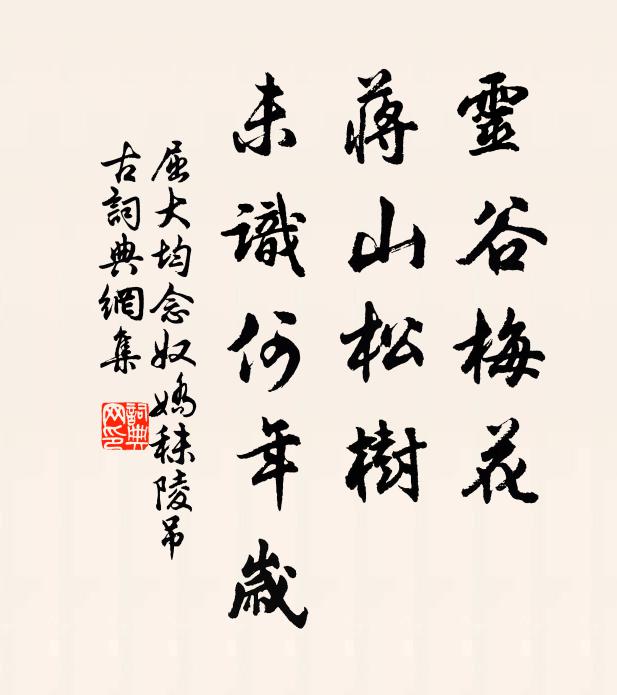 靈谷梅花
蔣山松樹
未識何年歲
屈大均念奴嬌秣陵吊
古詞典網集
詞典
网印